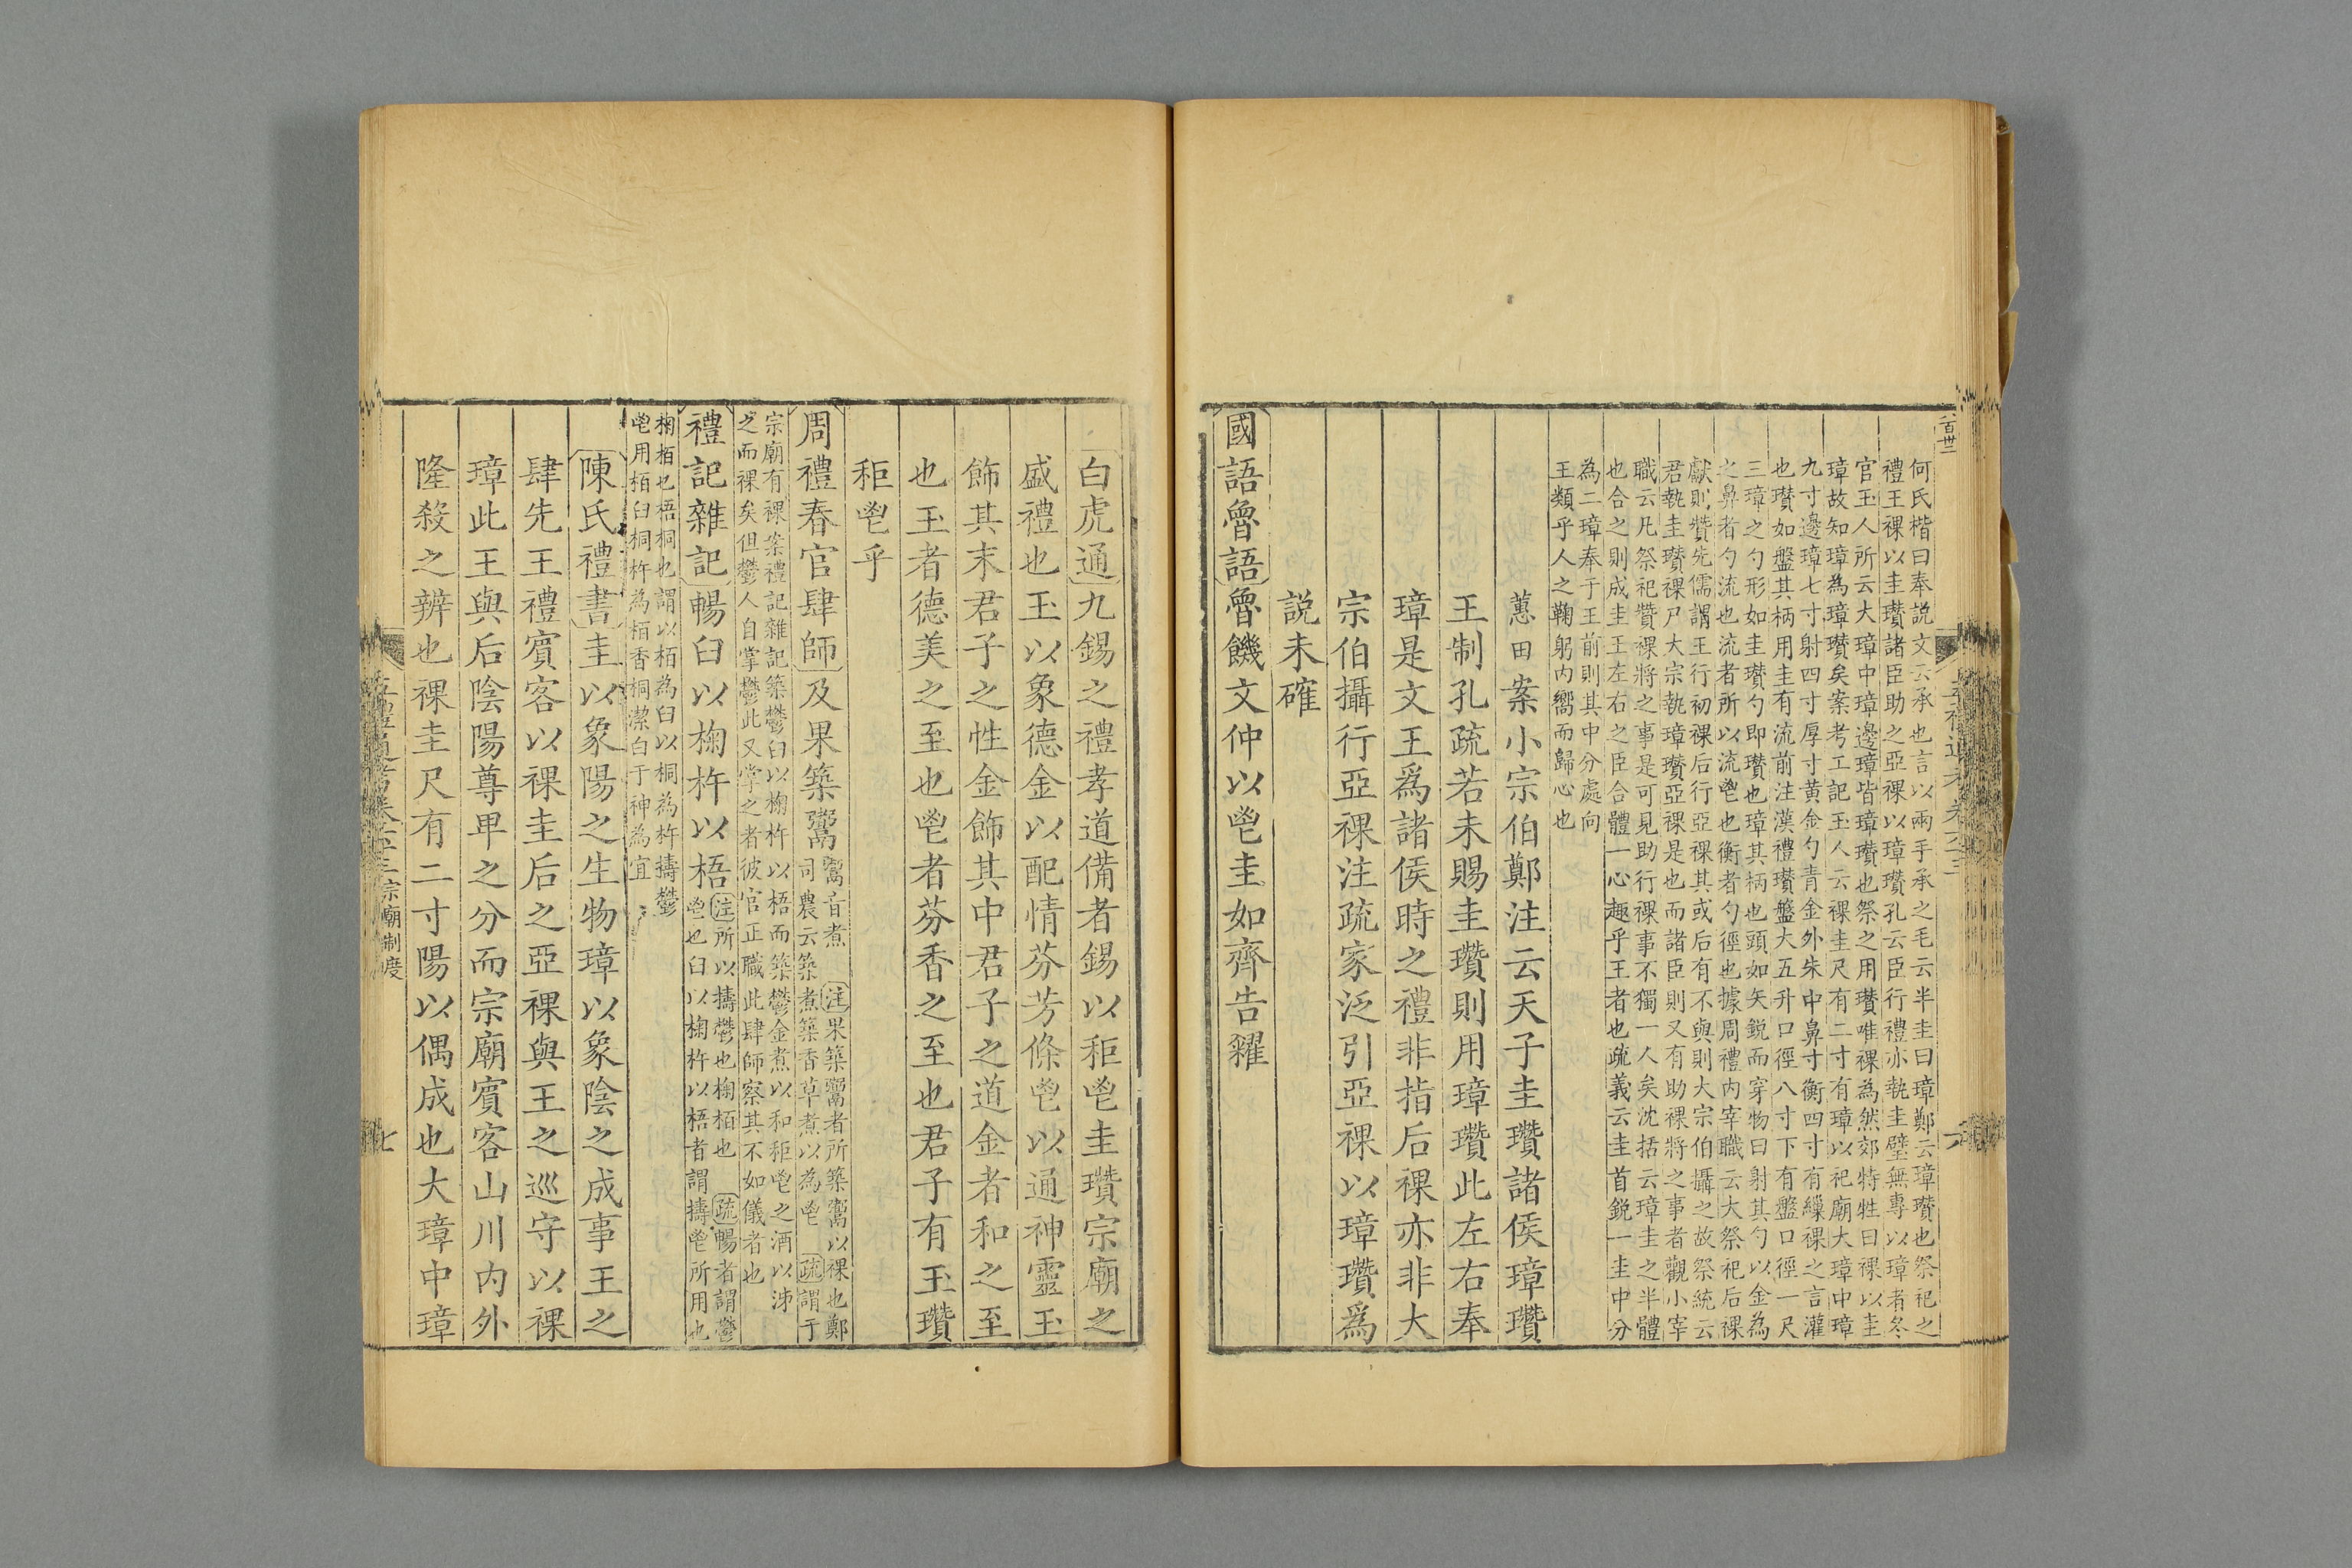 百卅二
何氏楷曰奉説文云承也言以兩手承之毛云半圭曰璋鄭云璋瓚也祭祀之
禮王祼以圭瓚諸臣助之亞祼以璋瓚孔云臣行禮亦執圭璧無專以璋者冬
官玉人所云大璋中璋邊璋皆璋瓚也祭之用瓚唯祼為然郊特牲曰祼以圭
璋故知璋為璋瓚矣案考工記玉人云祼圭尺有二寸有瓚以祀廟大璋中璋
九寸邊璋七寸射四寸厚寸黃金勺青金外朱中鼻寸衡四寸有繅祼之言灌
也瓚如盤其柄用圭有流前注漢禮瓚盤大五升口徑八寸下有盤口徑一尺
三璋之勺形如圭瓚勺即瓚也璋其柄也頭如矢鋭而穿物曰射其勺以金為
之鼻者勺流也流者所以流鬯也衡者勺徑也據周禮內宰職云大祭祀后祼
獻則贊先儒謂王行初祼后行亞祼其或后有不與則大宗伯攝之故祭統云
君執圭瓚祼尸大宗執璋瓚亞祼是也而諸臣則又有助祼將之事者觀小宰
職云凡祭祀贊祼將之事是可見助行祼事不獨一人矣沈括云璋圭之半體
也合之則成圭王左右之臣合體一心趣乎王者也疏義云圭首鋭一圭中分
為二璋奉于王前則其中分處向
王類乎人之鞠躬內嚮而歸心也
蕙田案小宗伯鄭注云天子圭瓚諸侯璋瓚
王制孔疏若未賜圭瓚則用璋瓚此左右奉
璋是文王為諸侯時之禮非指后祼亦非大
宗伯攝行亞祼注疏家泛引亞祼以璋瓚為
説未確
國語魯語魯饑文仲以鬯圭如齊告糴
六
白虎通九錫之禮孝道備者錫以秬鬯圭瓚宗廟之
盛禮也玉以象德金以配情芬芳條鬯以通神靈玉
飾其末君子之性金飾其中君子之道金者和之至
也玉者德美之至也鬯者芬香之至也君子有玉瓚
秬鬯乎
周禮春官肆師及果築鬻鬻音煮注果築鬻者所築鬻以祼也鄭
司農云築煮築香草煮以為鬯疏謂于
宗廟有祼案禮記雜記築鬱臼以椈杵以梧而築鬱金煮以和秬鬯之酒以泲
之而祼矣但鬱人自掌鬱此又掌之者彼官正職此肆師察其不如儀者也
禮記雜記暢臼以椈杵以梧注所以擣鬱也椈栢也疏暢者謂鬱
鬯也臼以椈杵以梧者謂擣鬯所用也
椈栢也梧桐也謂以栢為臼以桐為杵擣鬱
鬯用栢臼桐杵為栢香桐潔白于神為宜
陳氏禮書圭以象陽之生物璋以象陰之成事王之
肆先王禮賓客以祼圭后之亞祼與王之巡守以祼
璋此王與后陰陽尊卑之分而宗廟賓客山川內外
隆殺之辨也祼圭尺有二寸陽以偶成也大璋中璋
宗廟制度
七